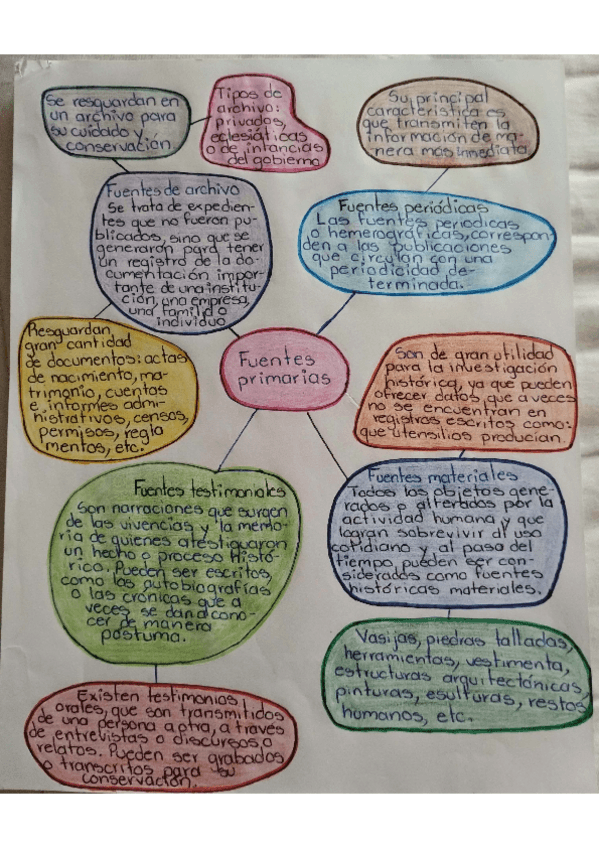 Se resguardan en
un archivo para
su cuidado y
conservación
Tipos de
archivo:
privados,
eclesiáticas
o de intancias
del gobierno
Su principal
característica es
que transmiten la
información de ma-
nera mas inmediata
Fuentes de archivo
Se trata de expedien-
tes que no fueron pu-
blicados, sino que se
generarón para tener
un registro de la do-
cumentación impor-
tante de una institu-
ción, una empresa,
una familia o
individuo
Fuentes periódicas
Las fuentes periodicas
o hemerográficas, correspon-
den a las publicaciones
que circulan con una
periodicidad de-
terminada.
Resguardan
gran cantidad
de documentos: actas
de nacimiento, ma-
trimonio, cuentas
e informes admi-
nistrativos, censos,
permisos, regla
mentos, etc.
Fuentes
primarias
Son de gran utilidad
para la investigación
histórica, ya que pueden
ofrecer datos que a veces
no se encuentran en
registros escritos como:
que utensilios producian.
Fuentes testimoniales
Son narraciones que surgen
de las vivencias y la memo-
ria de quienes atestiguaron
un hecho o proceso histó-
rico. Pueden ser escritos,
como las autobiografías
o las crónicas que a
veces se dan a cono-
cer de manera
postuma.
Fuentes materiales
Todos los objetos gene-
rados o alterados por la
actividad humana y que
logran sobrevivir al uso
cotidiano y al paso del
tiempo, pueden ser con-
siderados como fuentes
históricas materiales.
Vasijas, piedras talladas,
herramientas, vestimenta,
estructuras arquitectónicas,
pinturas, esulturas, restos
humanos, etc.
Existen testimonios
orales, que son transmitidos
de una persona a otra, a través
de entrevistas o discursos, o
relatos. Pueden ser grabados
o transcritos para su
conservación.